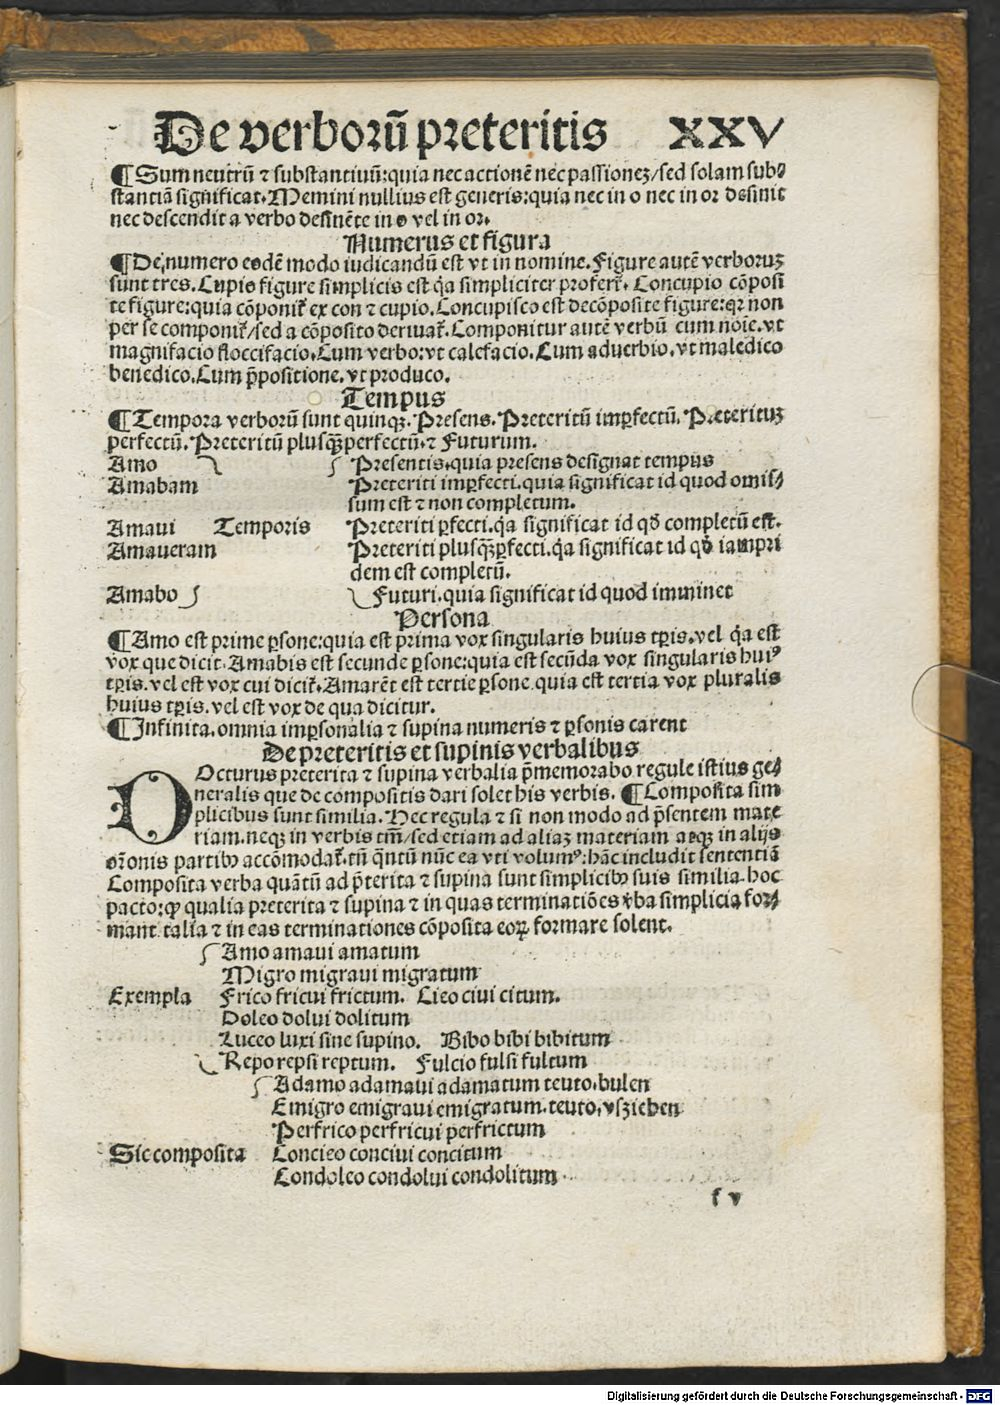 De verborū preteritis XXV
¶ Sum neutrū ⁊ substantiuū: quia nec actionē nec passionez/ sed solam sub⸗
stantiā significat. Memini nullius est generis: quia nec in o nec in or desinit
nec descendit a verbo desinēte in o vel in or.
Numerus et figura
¶ De numero eodē modo iudicandū est vt in nomine. Figure autē verboruz
sunt tres. Cupio figure simplicis est q̇a simpliciter profert᷑. Concupio cōposi
te figure: quia cōponit᷑ ex con ⁊ cupio. Concupisco est decōposite figure: qꝛ non
per se componit᷑/ sed a cōposito deriuat᷑. Componitur autē verbū cum noīe. vt
magnifacio floccifacio. Cum verbo: vt calefacio. Cum aduerbio. vt maledico
benedico. Cum p̄positione. vt produco.
Tempus
¶ Tempora verborū sunt quinqꝫ. Presens. Preteritū imꝑfectū. Preterituz
perfectū. Preteritū plusqꝫ̄perfectū. ⁊ Futurum.
Amo Presentis. quia presens designat tempus
Amabam Preteriti imꝑfecti. quia significat id quod omis⸗
sum est ⁊ non completum.
Amaui Temporis Preteriti ꝑfecti. q̇a significat id qđ completū est.
Amaueram Preteriti plusqꝫ̄ꝑfecti. q̇a significat id qđ iampri
dem est completū.
Amabo Futuri. quia significat id quod imminet
Persona
¶ Amo est prime ꝑsone: quia est prima vox singularis huius tꝑis. vel q̇a est
vox que dicit. Amabis est secunde ꝑsone: quia est secūda vox singularis huiꝰ
tꝑis. vel est vox cui dicit᷑. Amarēt est tertie ꝑsone. quia est tertia vox pluralis
huius tꝑis. vel est vox de qua dicitur.
¶ Infinita. omnia imꝑsonalia ⁊ supina numeris ⁊ ꝑsonis carent
De preteritis et supinis verbalibus
DOcturus preterita ⁊ supina verbalia p̄memorabo regule istius ge⸗
neralis que de compositis dari solet his verbis. ¶ Composita sim
plicibus sunt similia. Hec regula ⁊ si non modo ad p̄sentem mate
riam. neqꝫ in verbis tm̄/ sed etiam ad aliaz materiam aeqꝫ in alijs
or̄onis partibꝰ accōmodat᷑. tū q̄ntū nūc ea vti volumꝰ: hāc includit sententiā
Composita verba quātū ad p̄terita ⁊ supina sunt simplicibꝰ suis similia. hoc
pacto: ꝙ qualia preterita ⁊ supina ⁊ in quas terminatiōes v̄ba simplicia for⸗
mant. talia ⁊ in eas terminationes cōposita eoꝝ formare solent.
Amo amaui amatum
Migro migraui migratum
Exempla Frico fricui frictum. Cieo ciui citum.
Doleo dolui dolitum
Luceo luxi sine supino. Bibo bibi bibitum
Repo repsi reptum. Fulcio fulsi fultum
Adamo adamaui adamatum teuto. bulen
Emigro emigraui emigratum. teuto. vsziehen
Perfrico perfricui perfrictum
Sic composita Concieo conciui concitum
Condoleo condolui condolitum
f v
Digitalisierung gefördert durch die Deutsche Forschungsgemeinschaft - DFG